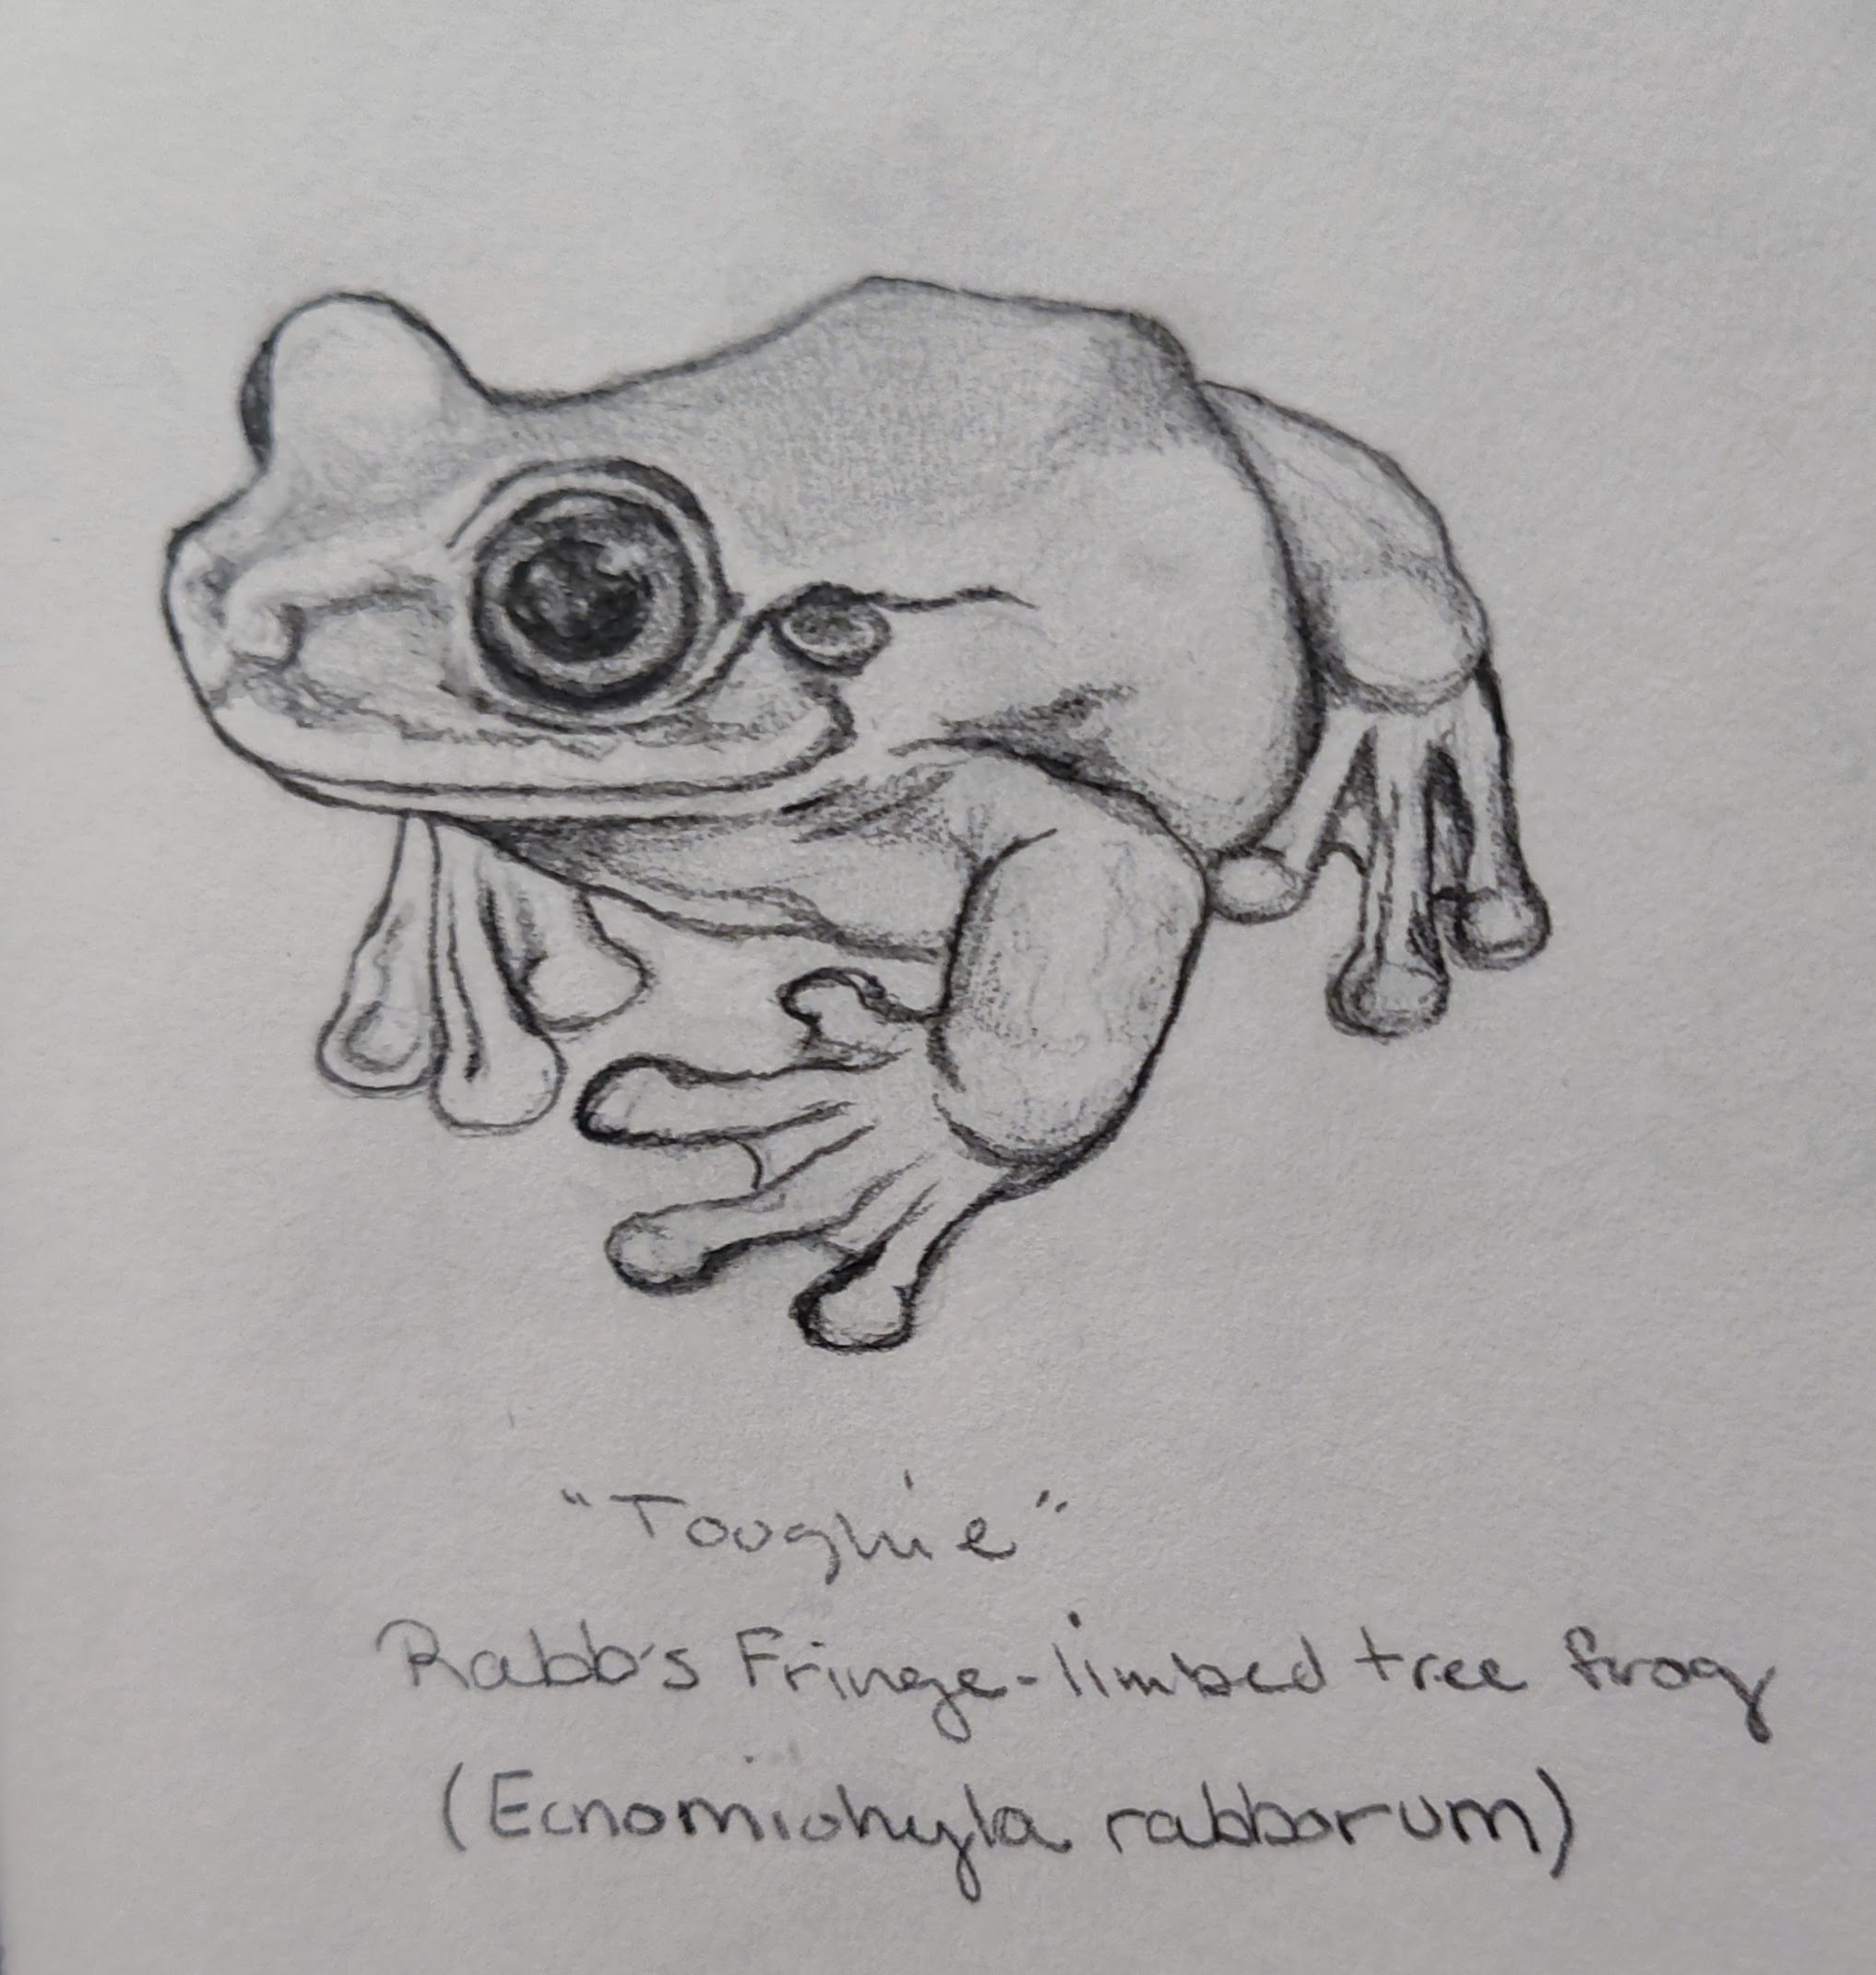 "Toughie"
Rabb's Fringe-limbed tree frog
(Ecnomiohyla rabborum)